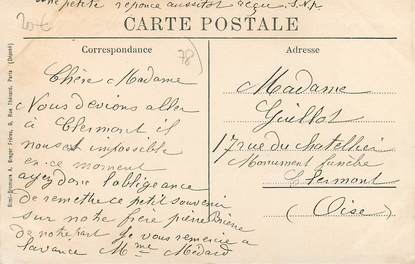 une petite réponce aussitot reçu S.V.P.
20€
CARTE POSTALE
Correspondance
Adresse
78
Chère Madame
Nous devions aller
à Clermont il
nous est impossible
en ce moment
ayez donc l'obligeance
de remettre ce petit souvenir
sur notre frère pierre
de notre part je vous remercie a
lavance Mme Médard
Madame
Guillot
17 rue du Chatellier
Monument funèbre
Clermont
(Oise)
Paris (Déposé)